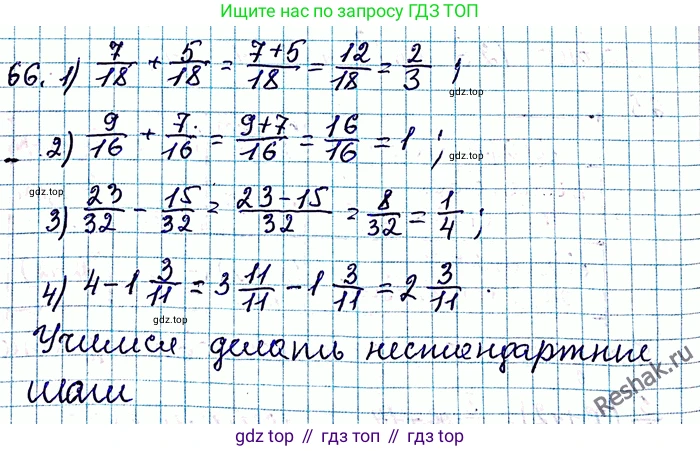 Ищите нас по запросу ГДЗ ТОП
66. 1) 7/18 + 5/18 = 7+5/18 = 12/18 = 2/3 ;
gdz.top
gdz.top
2) 9/16 + 7/16 = 9+7/16 = 16/16 = 1 ;
gdz.top
gdz.top
3) 23/32 - 15/32 = 23-15/32 = 8/32 = 1/4 ;
gdz.top
4) 4 - 1 3/11 = 3 11/11 - 1 3/11 = 2 3/11 .
gdz.top
gdz.top
Учимся делать нестандартние
шаги
Reshak.ru
gdz top // гдз топ // gdz.top // гдз топ